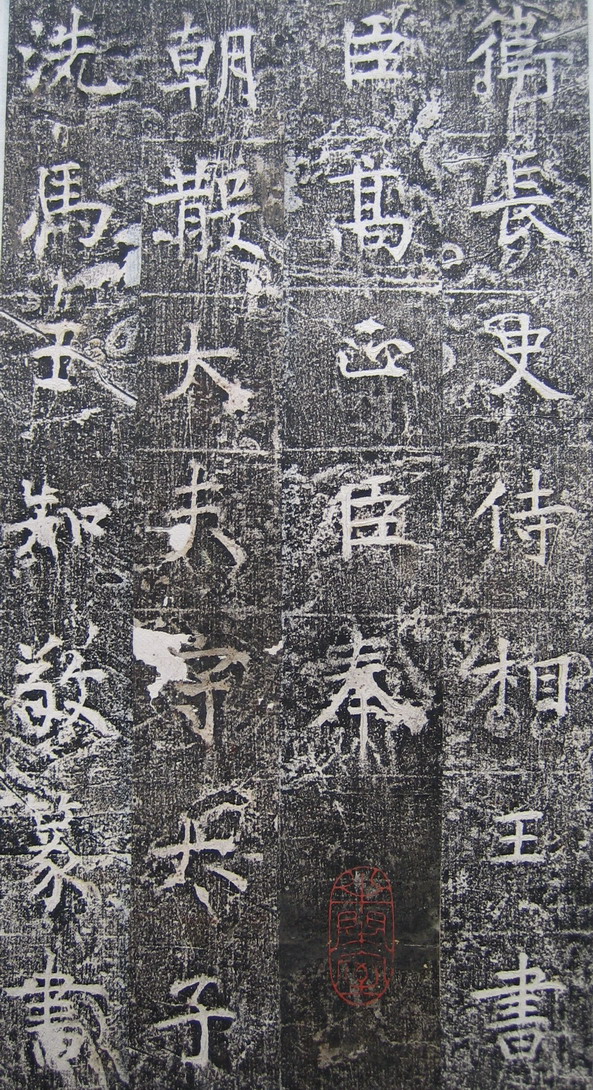 衛長史侍相王書
臣髙正臣奉
朝散大夫守太子
洗馬王知敬篆書